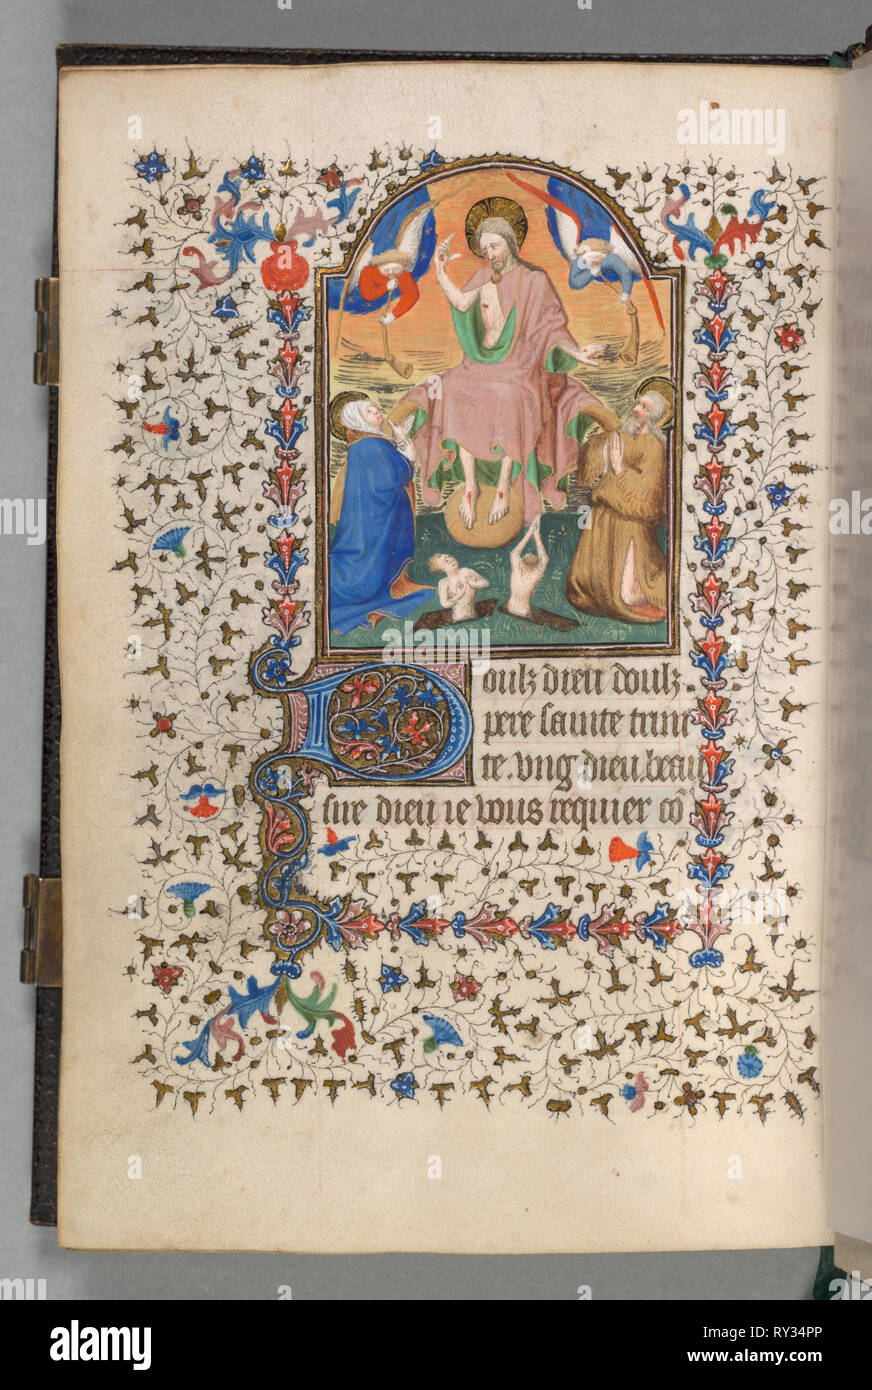 Doulz dieu doulz
pere sainte trini
te. vng dieu. beau
sire dieu ie vous requier cō
alamy
Image ID: RY34PP
www.alamy.com